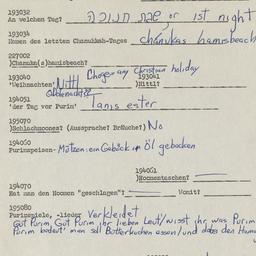 193032
An welchem Tag? שבת חנוכה or 1st night
193034
Nomen des letzten Chanukkah-Tages chanukas hamisbeach
227002
)Chanuka(s)hamisbeach?
193040 any Christian holiday
'Weihnachten' Nittl )Nittl?
193041
194051
'der Tag vor Purim' Tanis ester
195070
)Schlachmones? (Aussprache? Bräuche?) No
194060
Purimspeisen- Matzen: ein Gebäck in öl gebacken
194061
)Homentaschen?
194070
Hat man den Hoomen "geschlagen"? Womit?
195080
Purimspiele, -lieder Verkleidet
Gut Purim, Gut Purim ihr lieben Leut/wisst ihr was Purim
Purim bedeut' man soll Butterkuchen essen/und dabei den Hom